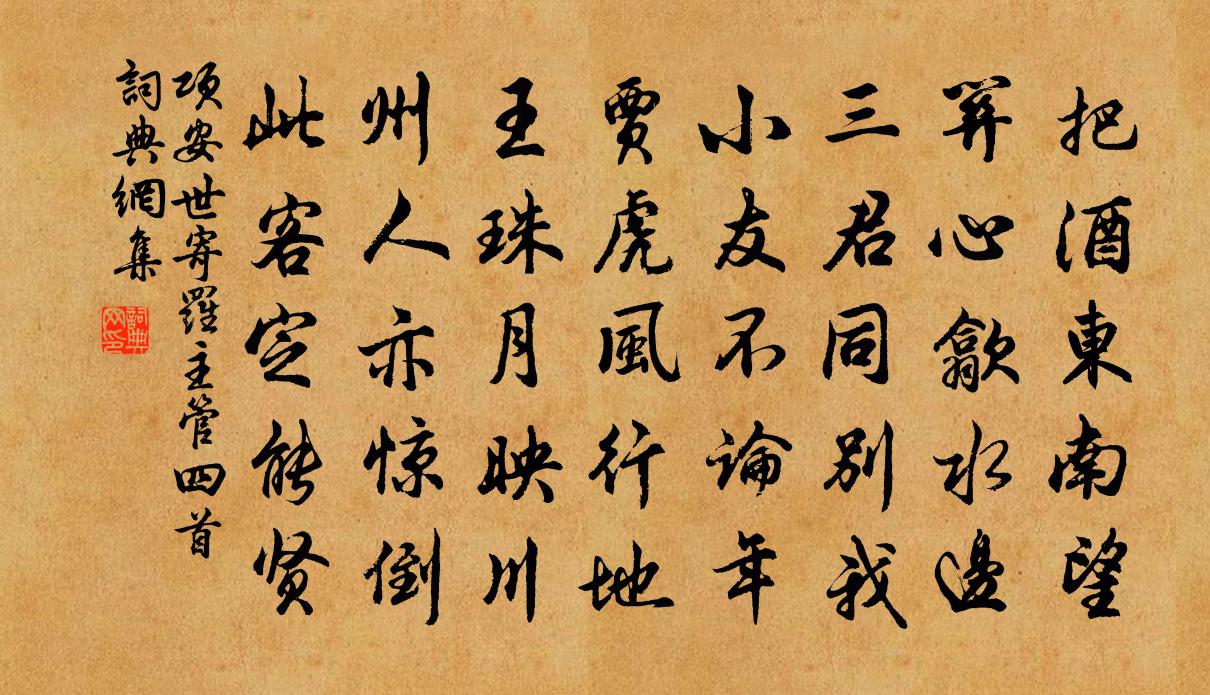 把酒東南望
羿心歙水邊
三君同別我
小友不論年
賈虎風行地
王珠月映川
州人亦惊倒
此客定能贤
項安世寄羅主管四首
詞典網集
詞典网印